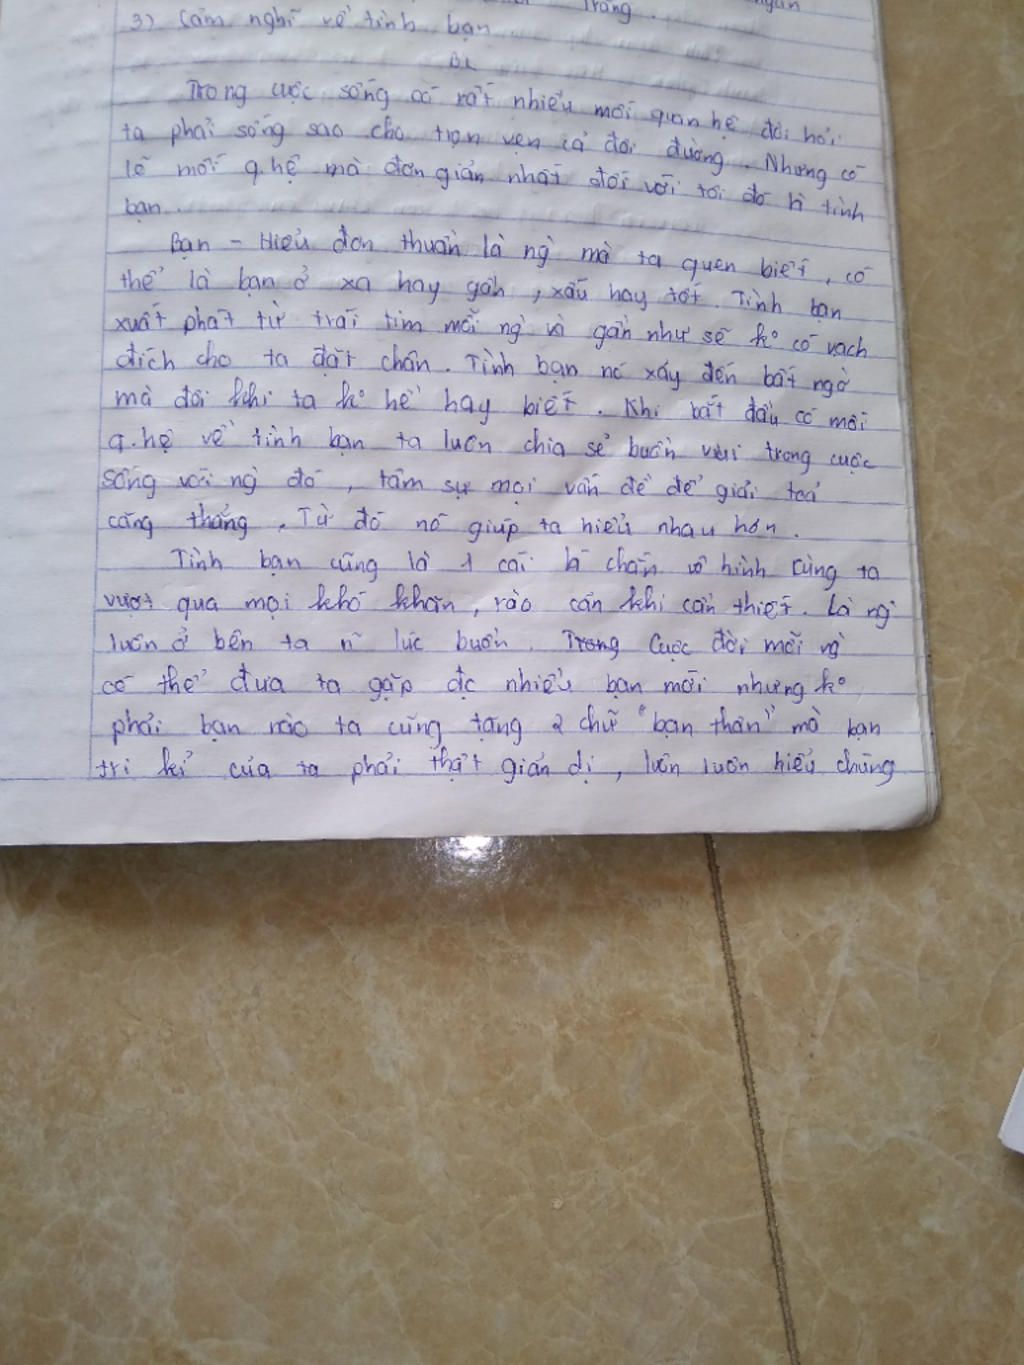 Trang.
3) Cảm nghĩ về tình bạn
BL
Trong cuộc sống có rất nhiều mối quan hệ đòi hỏi
ta phải sống sao cho trọn vẹn cả đôi đường. Nhưng có
lẽ mối q.hệ mà đơn giản nhất đối với tôi đó là tình
bạn.
Bạn - Hiểu đơn thuần là ng` mà ta quen biết, có
thể là bạn ở xa hay gần, xấu hay tốt. Tình bạn
xuất phát từ trái tim mỗi ng` và gần như sẽ k° có vạch
đích cho ta đặt chân. Tình bạn nó xảy đến bất ngờ
mà đôi khi ta k° hề hay biết. Khi bắt đầu có mối
q.hệ về tình bạn ta luôn chia sẻ buồn vui trong cuộc
sống với ng` đó, tâm sự mọi vấn đề để giải toả
căng thẳng. Từ đó nó giúp ta hiểu nhau hơn.
Tình bạn cũng là 1 cái lá chắn vô hình cùng ta
vượt qua mọi khó khăn, rào cản khi cần thiết. Là ng`
luôn ở bên ta n~ lúc buồn. Trong Cuộc đời mỗi ng`
có thể đưa ta gặp đc nhiều bạn mới nhưng k°
phải bạn nào ta cũng tặng 2 chữ "bạn thân" mà bạn
tri kỉ của ta phải thật giản dị, luôn luôn hiểu chúng